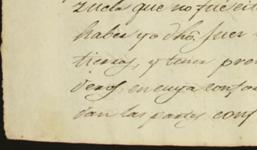 zuela que no fue
haber yo dho. fuer
tierras, y tener pro
deros, en cuya confor
dan las partes conf